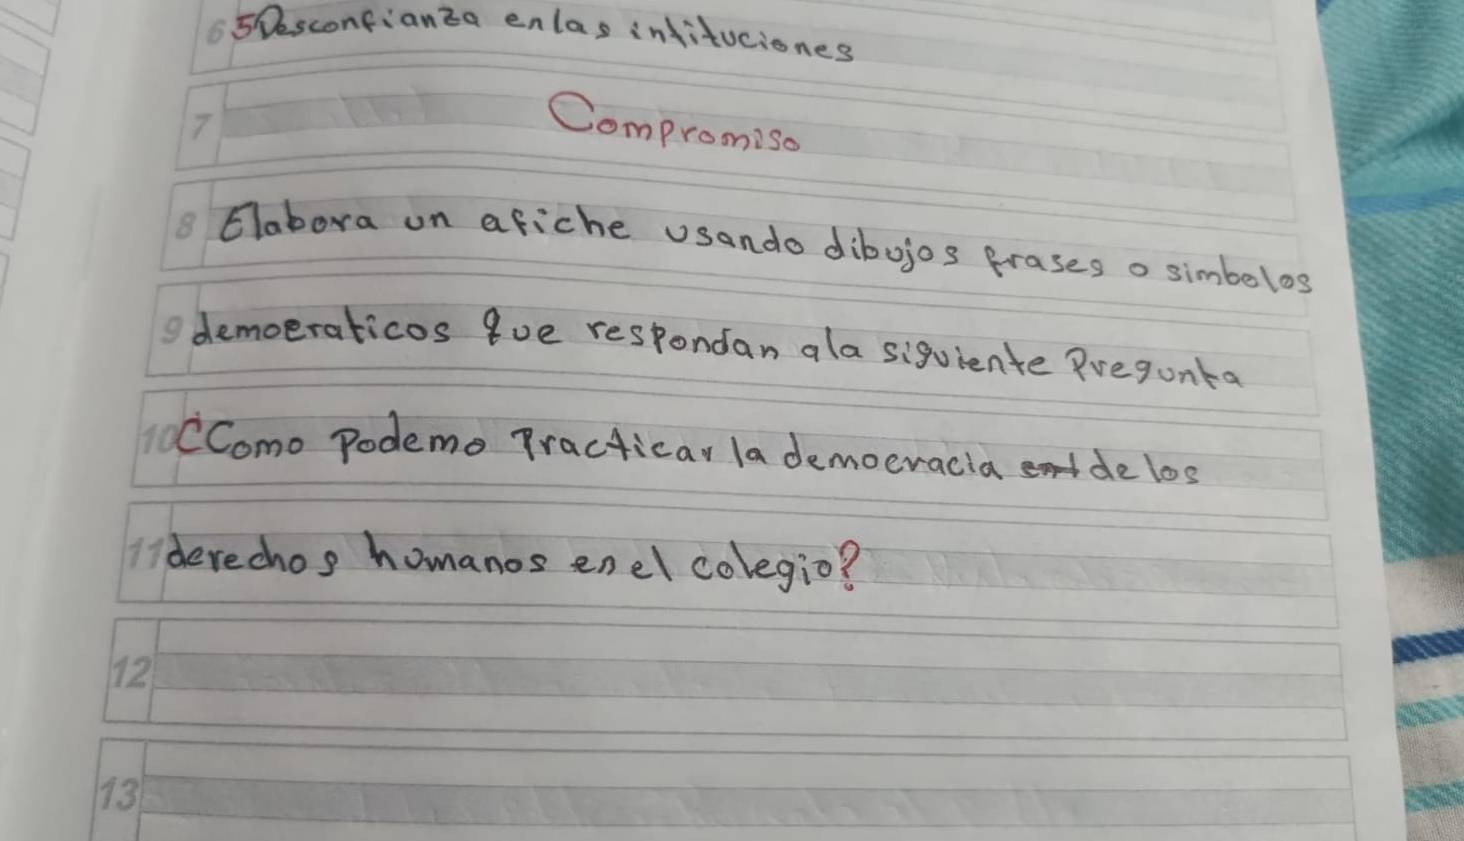 6 5 Desconfianza en las intituciones
7 Compromiso
8 Elabora un afiche usando dibujos frases o simbolos
9 demoeraticos que respondan ala siguiente Pregunta
10 ¿Como Podemo Practicar la democracia ent de los
11 derechos humanos en el colegio?
12
13